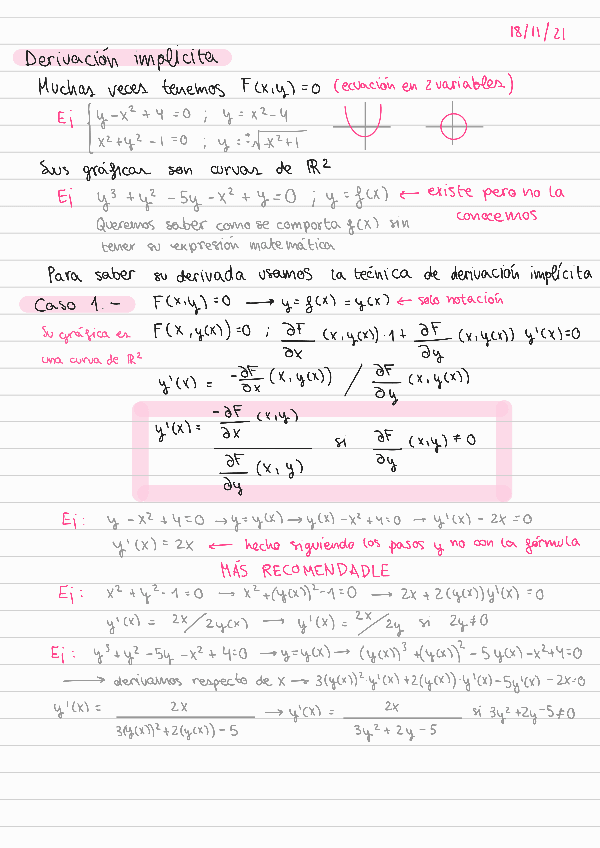 18/11/21
Derivación implícita
Muchas veces tenemos F(x,y)=0 (ecuación en 2 variables)
Ej { y-x²+4=0 ; y=x²-4
x²+y²-1=0 ; y=±√-x²+1
Sus gráficas son curvas de ℝ²
Ej y³+y²-5y-x²+y=0 ; y=f(x) ← existe pero no la
conocemos
Queremos saber como se comporta f(x) sin
tener su expresión matemática
Para saber su derivada usamos la técnica de derivación implícita
Caso 1.- F(x,y)=0 → y=f(x)=y(x) ← solo notación
Su gráfica es
una curva de ℝ²
F(x,y(x))=0 ; ∂F/∂x (x,y(x))·1+ ∂F/∂y (x,y(x)) y'(x)=0
y'(x) = -∂F/∂x (x,y(x)) / ∂F/∂y (x,y(x))
y'(x) = -∂F/∂x (x,y) / ∂F/∂y (x,y) si ∂F/∂y (x,y)≠0
Ej: y-x²+4=0 → y=y(x) → y(x)-x²+4=0 → y'(x)-2x=0
y'(x)=2x ← hecho siguiendo los pasos y no con la fórmula
MÁS RECOMENDABLE
Ej: x²+y²-1=0 → x²+(y(x))²-1=0 → 2x+2(y(x))y'(x)=0
y'(x) = 2x/2y(x) → y'(x) = 2x/2y si 2y≠0
Ej: y³+y²-5y-x²+4=0 → y=y(x) → (y(x))³+(y(x))²-5y(x)-x²+4=0
→ derivamos respecto de x → 3(y(x))²·y'(x)+2(y(x))·y'(x)-5y'(x)-2x=0
y'(x) = 2x / 3(y(x))²+2(y(x))-5 → y'(x) = 2x / 3y²+2y-5 si 3y²+2y-5≠0